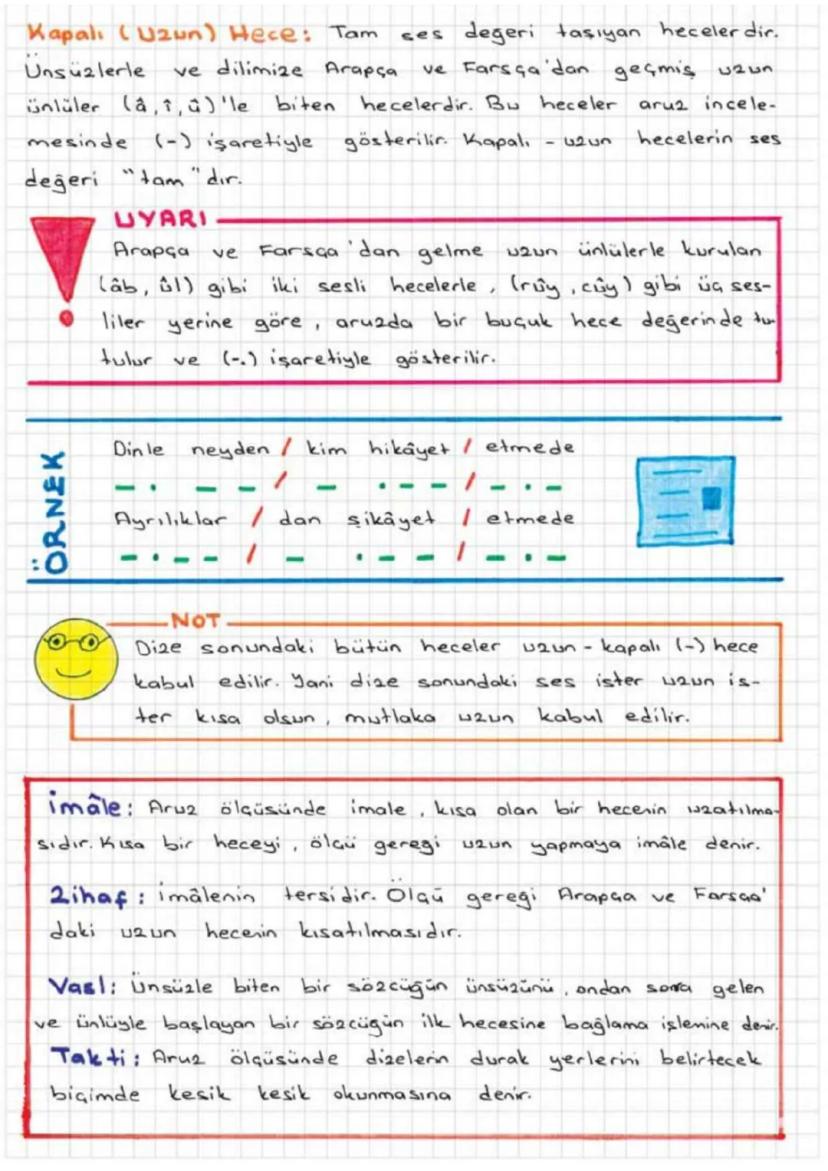 Kapalı (Uzun) Hece: Tam ses değeri taşıyan hecelerdir.
Ünsüzlerle ve dilimize Arapça ve Farsça'dan geçmiş uzun
ünlüler (â, î, û)'le biten hecelerdir. Bu heceler aruz incele-
mesinde (-) işaretiyle gösterilir. Kapalı - uzun hecelerin ses
değeri "tam"dır.
UYARI
Arapça ve Farsça'dan gelme uzun ünlülerle kurulan
(âb, ûl) gibi iki sesli hecelerle, (rûy, cûy) gibi üç ses-
liler yerine göre, aruzda bir buçuk hece değerinde tu-
tulur ve (-.) işaretiyle gösterilir.
ÖRNEK
Dinle neyden / kim hikâyet / etmede
- . - - / - . - - - / - . -
Ayrılıklar / dan şikâyet / etmede
- . - - / - . - - / - . -
NOT
Dize sonundaki bütün heceler uzun - kapalı (-) hece
kabul edilir. Yani dize sonundaki ses ister uzun is-
ter kısa olsun, mutlaka uzun kabul edilir.
imâle: Aruz ölçüsünde imale, kısa olan bir hecenin uzatılma-
sıdır. Kısa bir heceyi, ölçü gereği uzun yapmaya imâle denir.
Zihaf: imâlenin tersidir. Ölçü gereği Arapça ve Farsça'
daki uzun hecenin kısatılmasıdır.
Vasl: Ünsüzle biten bir sözcüğün ünsüzünü, ondan sonra gelen
ve ünlüyle başlayan bir sözcüğün ilk hecesine bağlama işlemine denir.
Takti: Aruz ölçüsünde dizelerin durak yerlerini belirtecek
biçimde kesik kesik okunmasına denir.